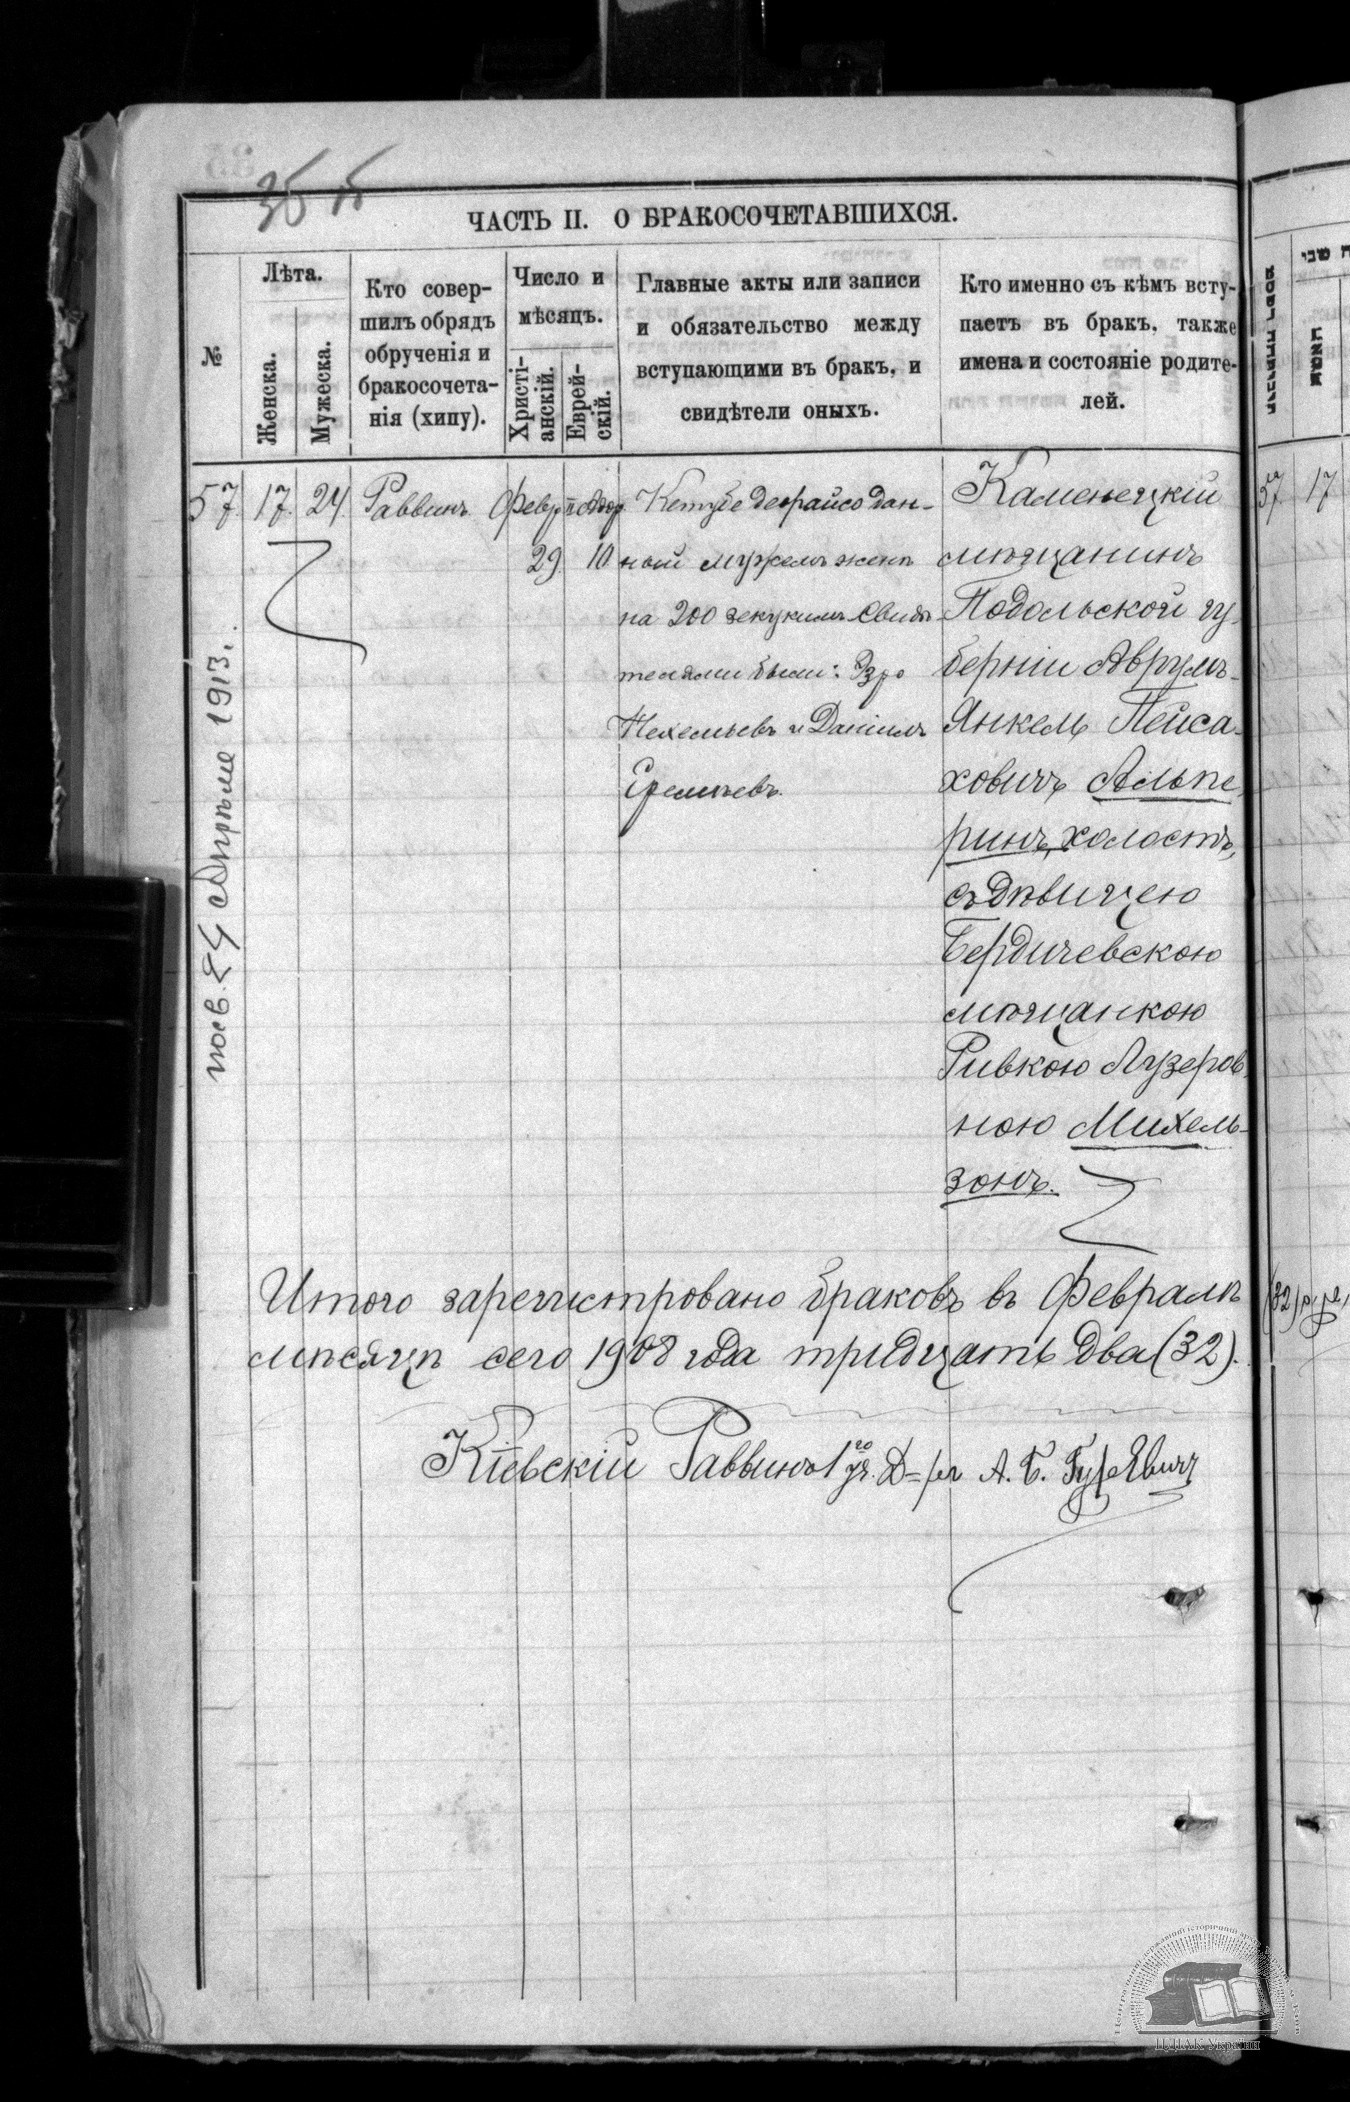 ЧАСТЬ II. О БРАКОСОЧЕТАВШИХСЯ.
№
Лѣта.
Женска.
Мужеска.
Кто совер-
шилъ обрядъ
обрученія и
бракосочета-
нія (хипу).
Число и
мѣсяцъ.
Христі-
анскій.
Еврей-
скій.
Главные акты или записи
и обязательство между
вступающими въ бракъ, и
свидѣтели оныхъ.
Кто именно съ кѣмъ всту-
паетъ въ бракъ, также
имена и состояніе родите-
лей.
57. 17. 24. Раввинъ Февр. Адор
29. 10
Кетубе деорайсо дан-
ной мужемъ женѣ
на 200 зекукимъ. Свидѣ-
телями были: Эзро
Нехемьевъ и Даніилъ
Еремѣевъ.
Каменецкій
мѣщанинъ
Подольской гу-
берніи Аврумъ-
Янкель Пейса-
ховичъ Альпе-
ринъ, холостъ,
съ дѣвицею
Бердичевскою
мѣщанкою
Ривкою Лузеров-
ною Михель-
зонъ.
24 Апрѣля 1913.
Итого зарегистровано браковъ въ Февралѣ
мѣсяцѣ сего 1908 года тридцать два (32).
Кіевскій Раввинъ 1го уч. Д-ръ А. Б. Гуревичъ
57 17
(32)
ЦДІАК України